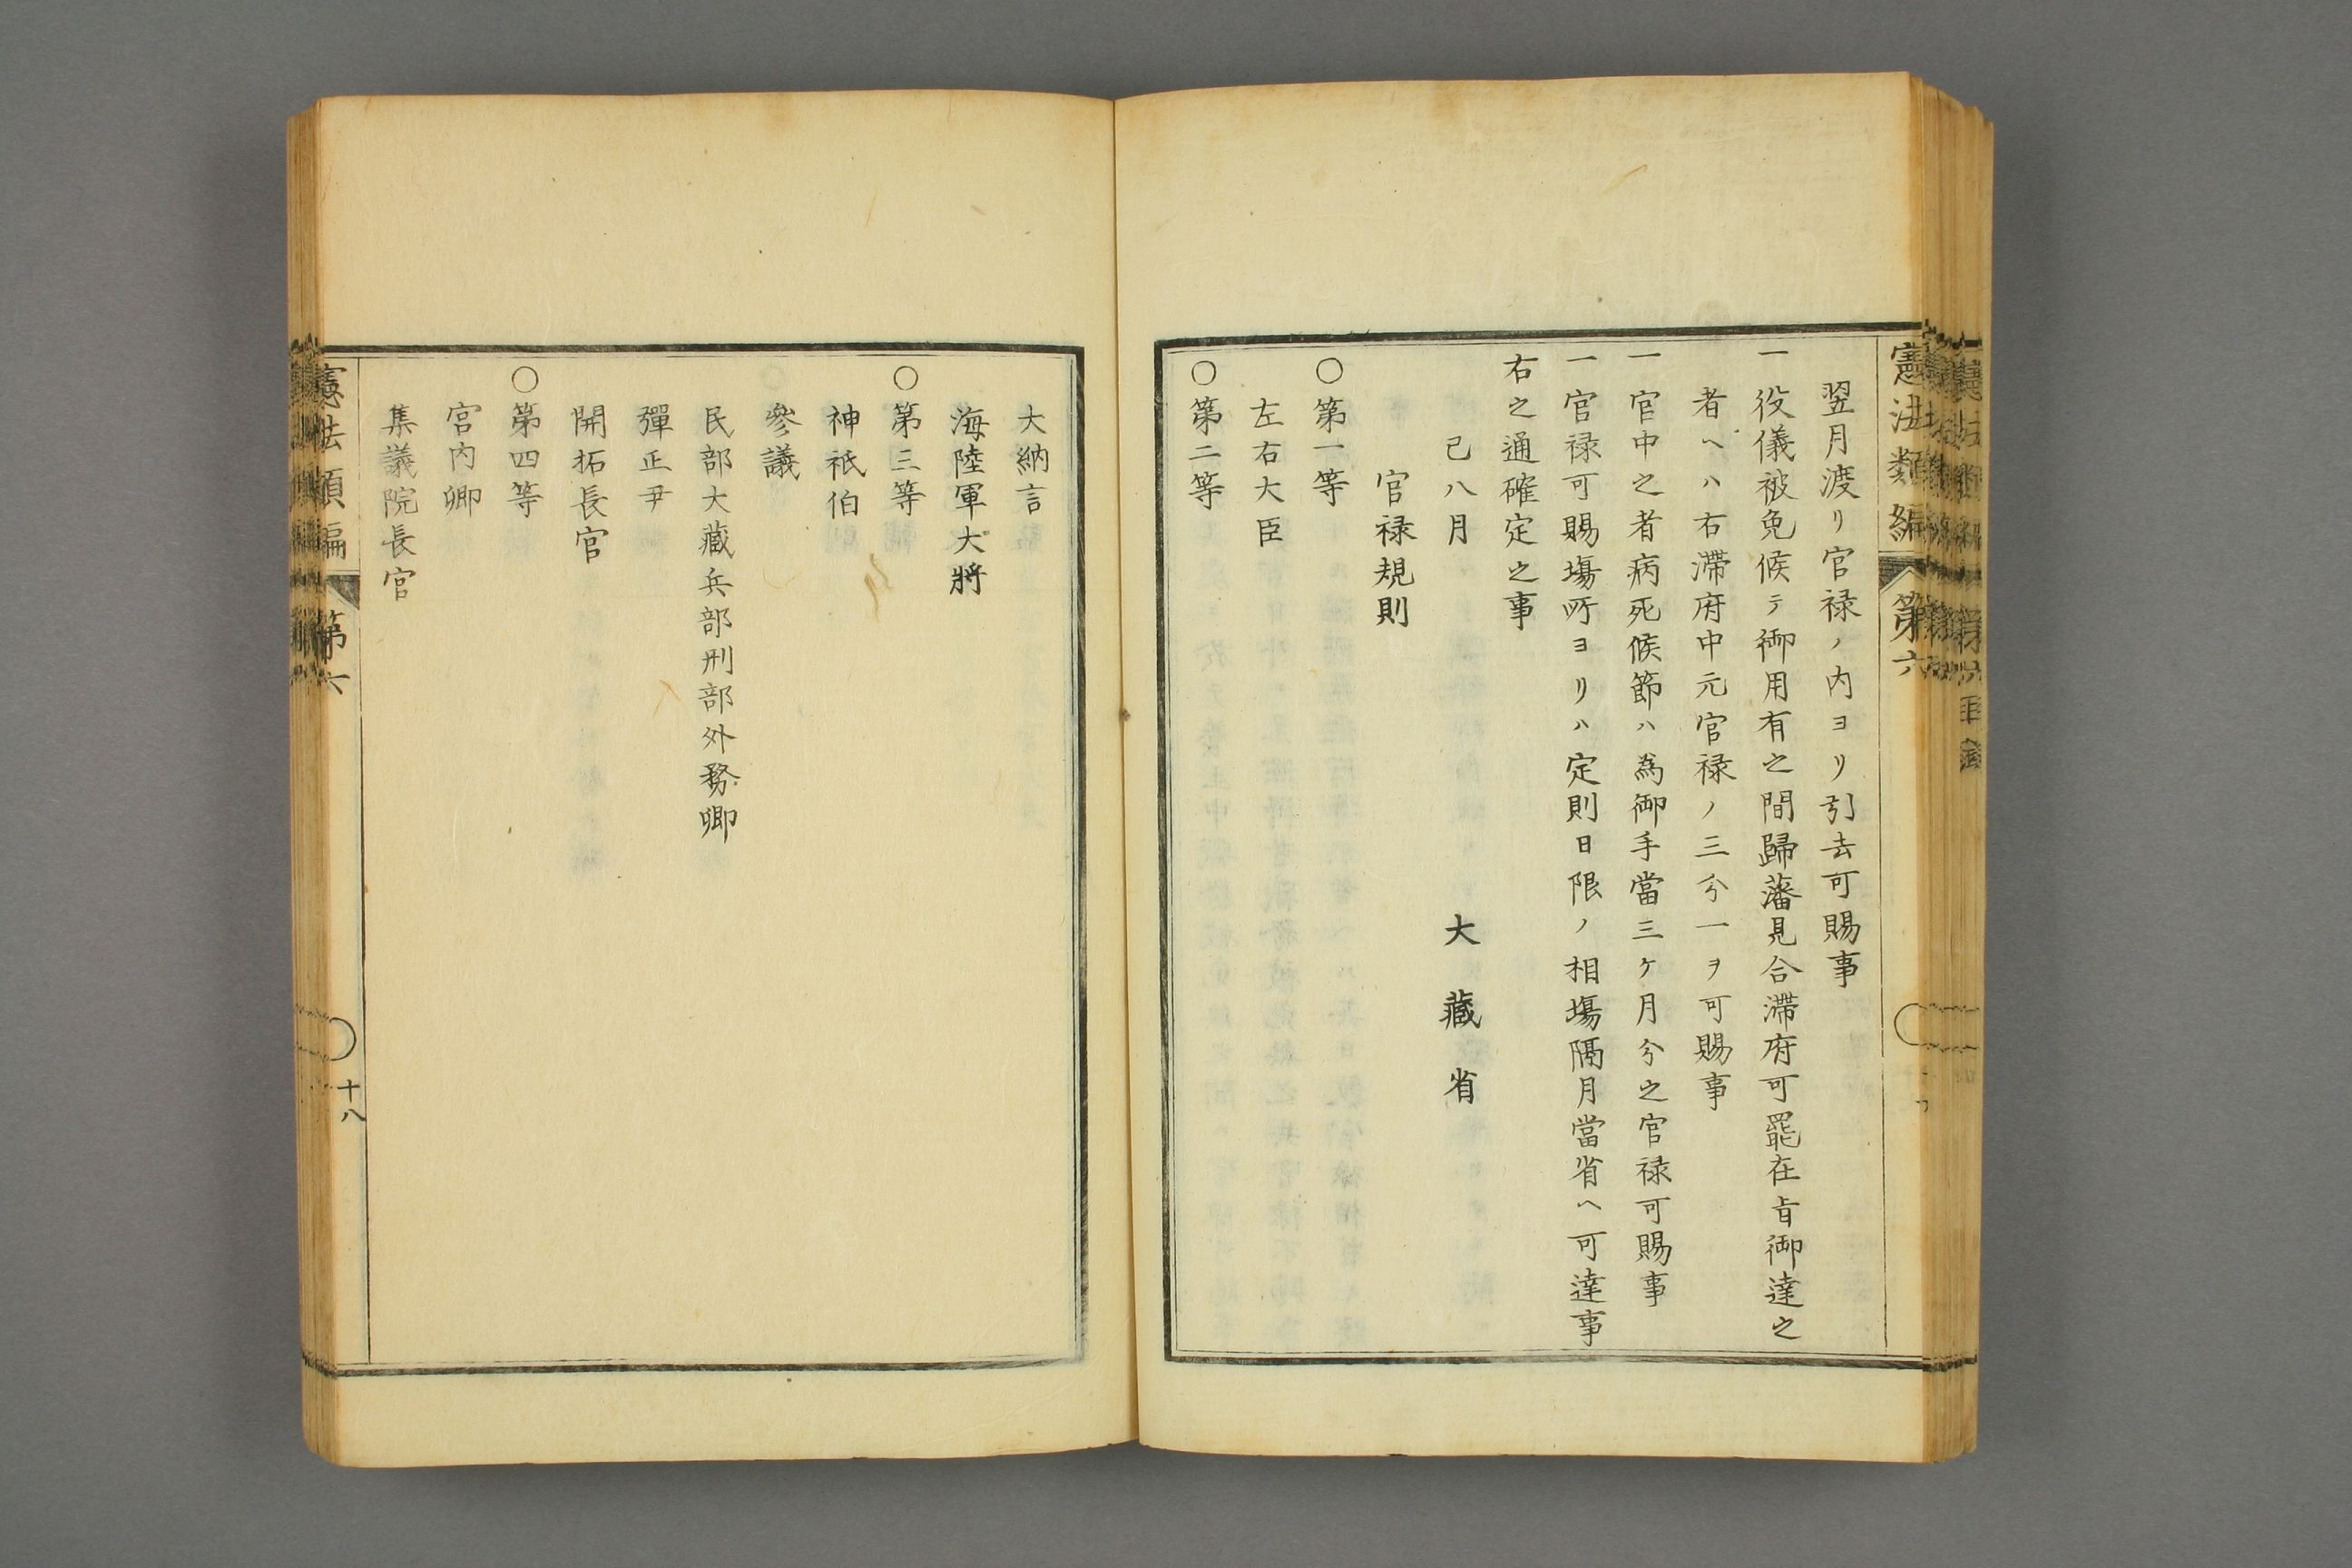 憲法類編 第六
翌月渡リ官禄ノ内ヨリ引去可賜事
一役儀被免候テ御用有之間歸藩見合滯府可罷在旨御達之
者ヘハ右滯府中元官禄ノ三分一ヲ可賜事
一官中之者病死候節ハ為御手當三ケ月分之官禄可賜事
一官禄可賜塲所ヨリハ定則日限ノ相塲隔月當省ヘ可達事
右之通確定之事
己八月 大藏省
官禄規則
○第一等
左右大臣
○第二等
大納言
海陸軍大將
○第三等
神祇伯
參議
民部大藏兵部刑部外務卿
彈正尹
開拓長官
○第四等
宮内卿
集議院長官
憲法類編 第六 十八